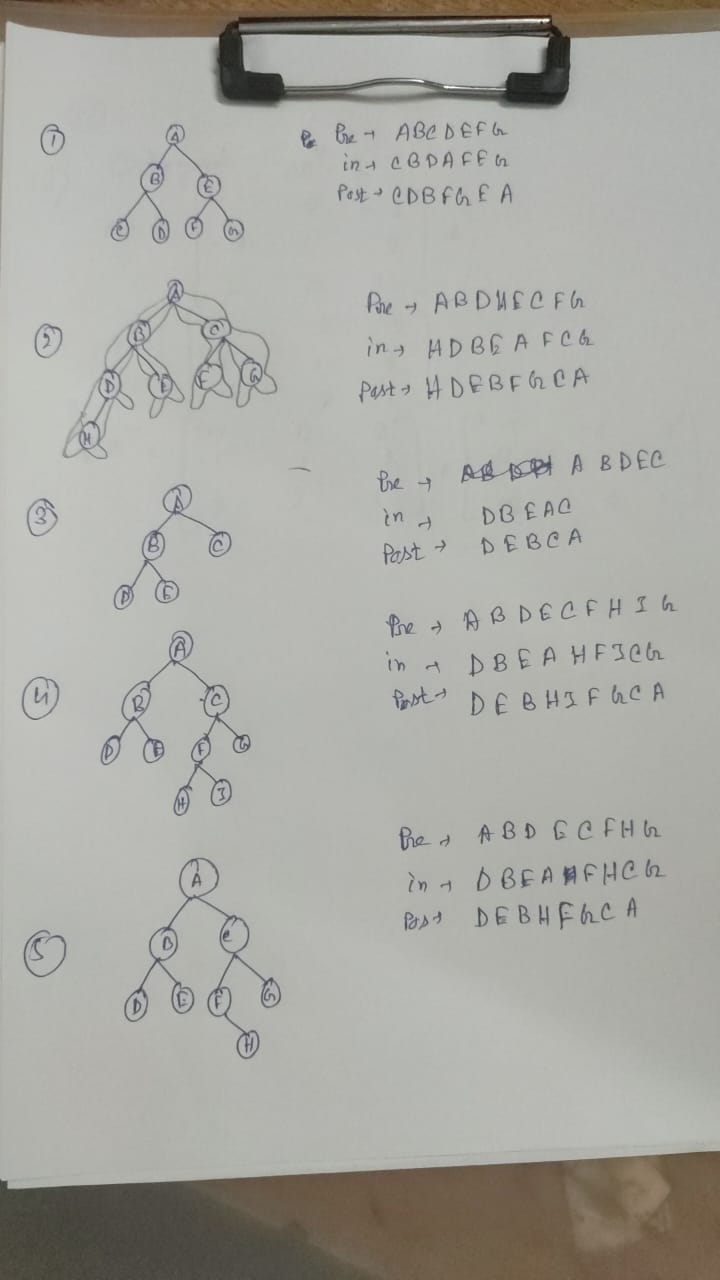 ①
A
B E
C D F G
Pre → ABCDEFG
in → CBDAFEG
Post → CDBFGEA
②
A
B C
D E F G
H
Pre → ABDHECFG
in → HDBEAFCG
Post → HDEBFGCA
③
A
B C
D E
Pre → ABDEC
in → DBEAC
Post → DEBCA
④
A
B C
D E F G
H I
Pre → ABDECFHIG
in → DBEAHFICG
Post → DEBHIFGCA
⑤
A
B C
D E F G
H
Pre → ABDECFHG
in → DBEAFHCG
Post → DEBHFGCA